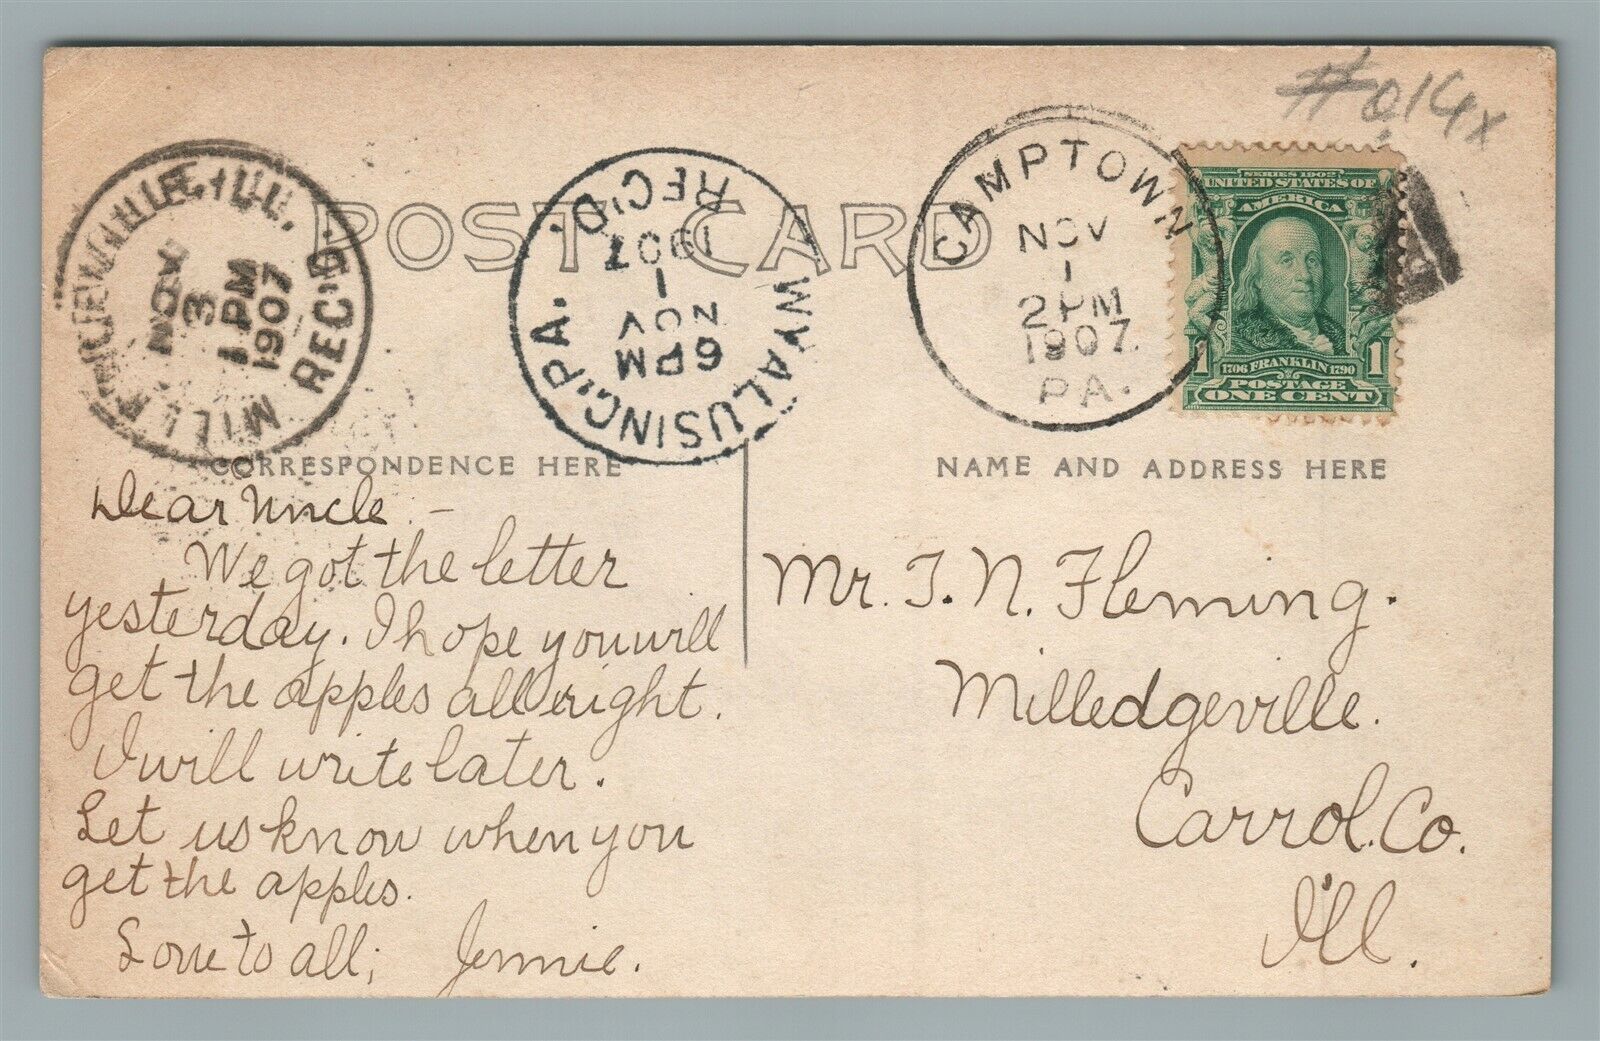 #014x
POST CARD
MILLEDGEVILLE, ILL.
NOV
3
1 PM
1907
REC'D.
WYALUSING, PA.
6 PM
NOV
1
1907
REC'D.
CAMPTOWN
NOV
1
2 PM
1907
PA.
SERIES 1902
UNITED STATES OF
AMERICA
1 1706 FRANKLIN 1790 1
POSTAGE
ONE CENT
CORRESPONDENCE HERE
Dear Uncle. -
We got the letter
yesterday. I hope you will
get the apples all right.
I will write later.
Let us know when you
get the apples.
Love to all; Jennie.
NAME AND ADDRESS HERE
Mr. T. N. Fleming.
Milledgeville.
Carrol. Co.
Ill.